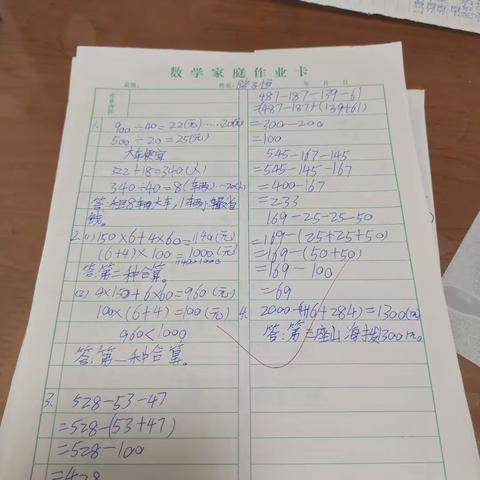 数学家庭作业卡
班级: 姓名: 年 月 日
作业内容
1. 900÷40=22(元)……20(元)
500÷20=25(元)
大车便宜
322+18=340(人)
340÷40=8(车两)……20(人)
答:租8车两大车,1车两小车最省
钱。
2.(1)150×6+4×60=1140(元)
(6+4)×100=1000(元)
1140>1000
答:第二种合算。
(2)4×150+6×60=960(元)
100×(6+4)=100(元)
960<1000
答:第一种合算。
3. 528-53-47
=528-(53+47)
=528-100
=428
487-187-139-61
=(487-187)-(139+61)
=300-200
=100
545-167-145
=545-145-167
=400-167
=233
169-25-25-50
=169-(25+25+50)
=169-(50+50)
=169-100
=69
4. 2000-(416+284)=1300(m)
答:第三座山海拔1300m。